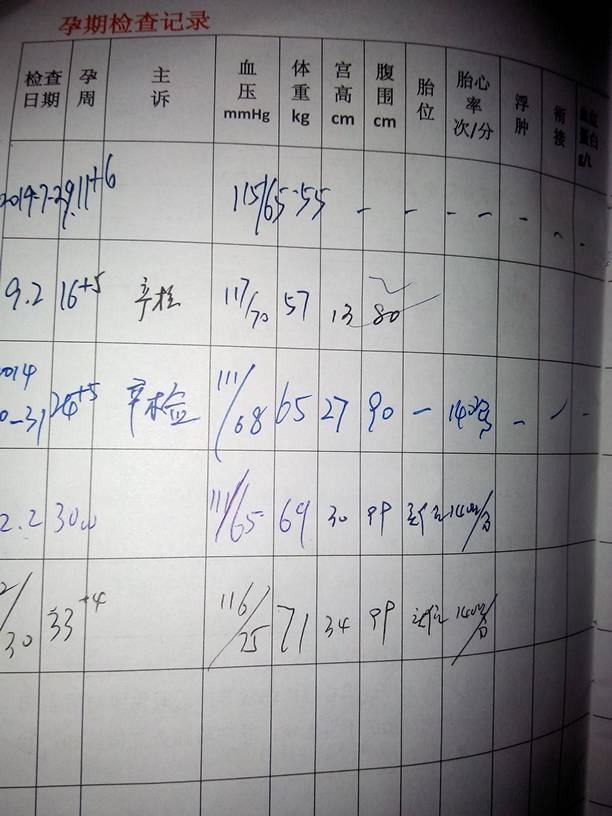 孕期检查记录
检查日期 孕周 主诉 血压 mmHg 体重 kg 宫高 cm 腹围 cm 胎位 胎心率 次/分 浮肿 衔接 血红蛋白 g/L
2014-7-29 11+6 115/65 55 - - - - - - -
9.2 16+5 117/70 57 13 80
2014 0-31 24+5 111/68 65 27 90 - 140 - -
2.2 30w 111/65 69 30 99 140次/分
2/30 33+4 116/75 71 34 99 140次/分